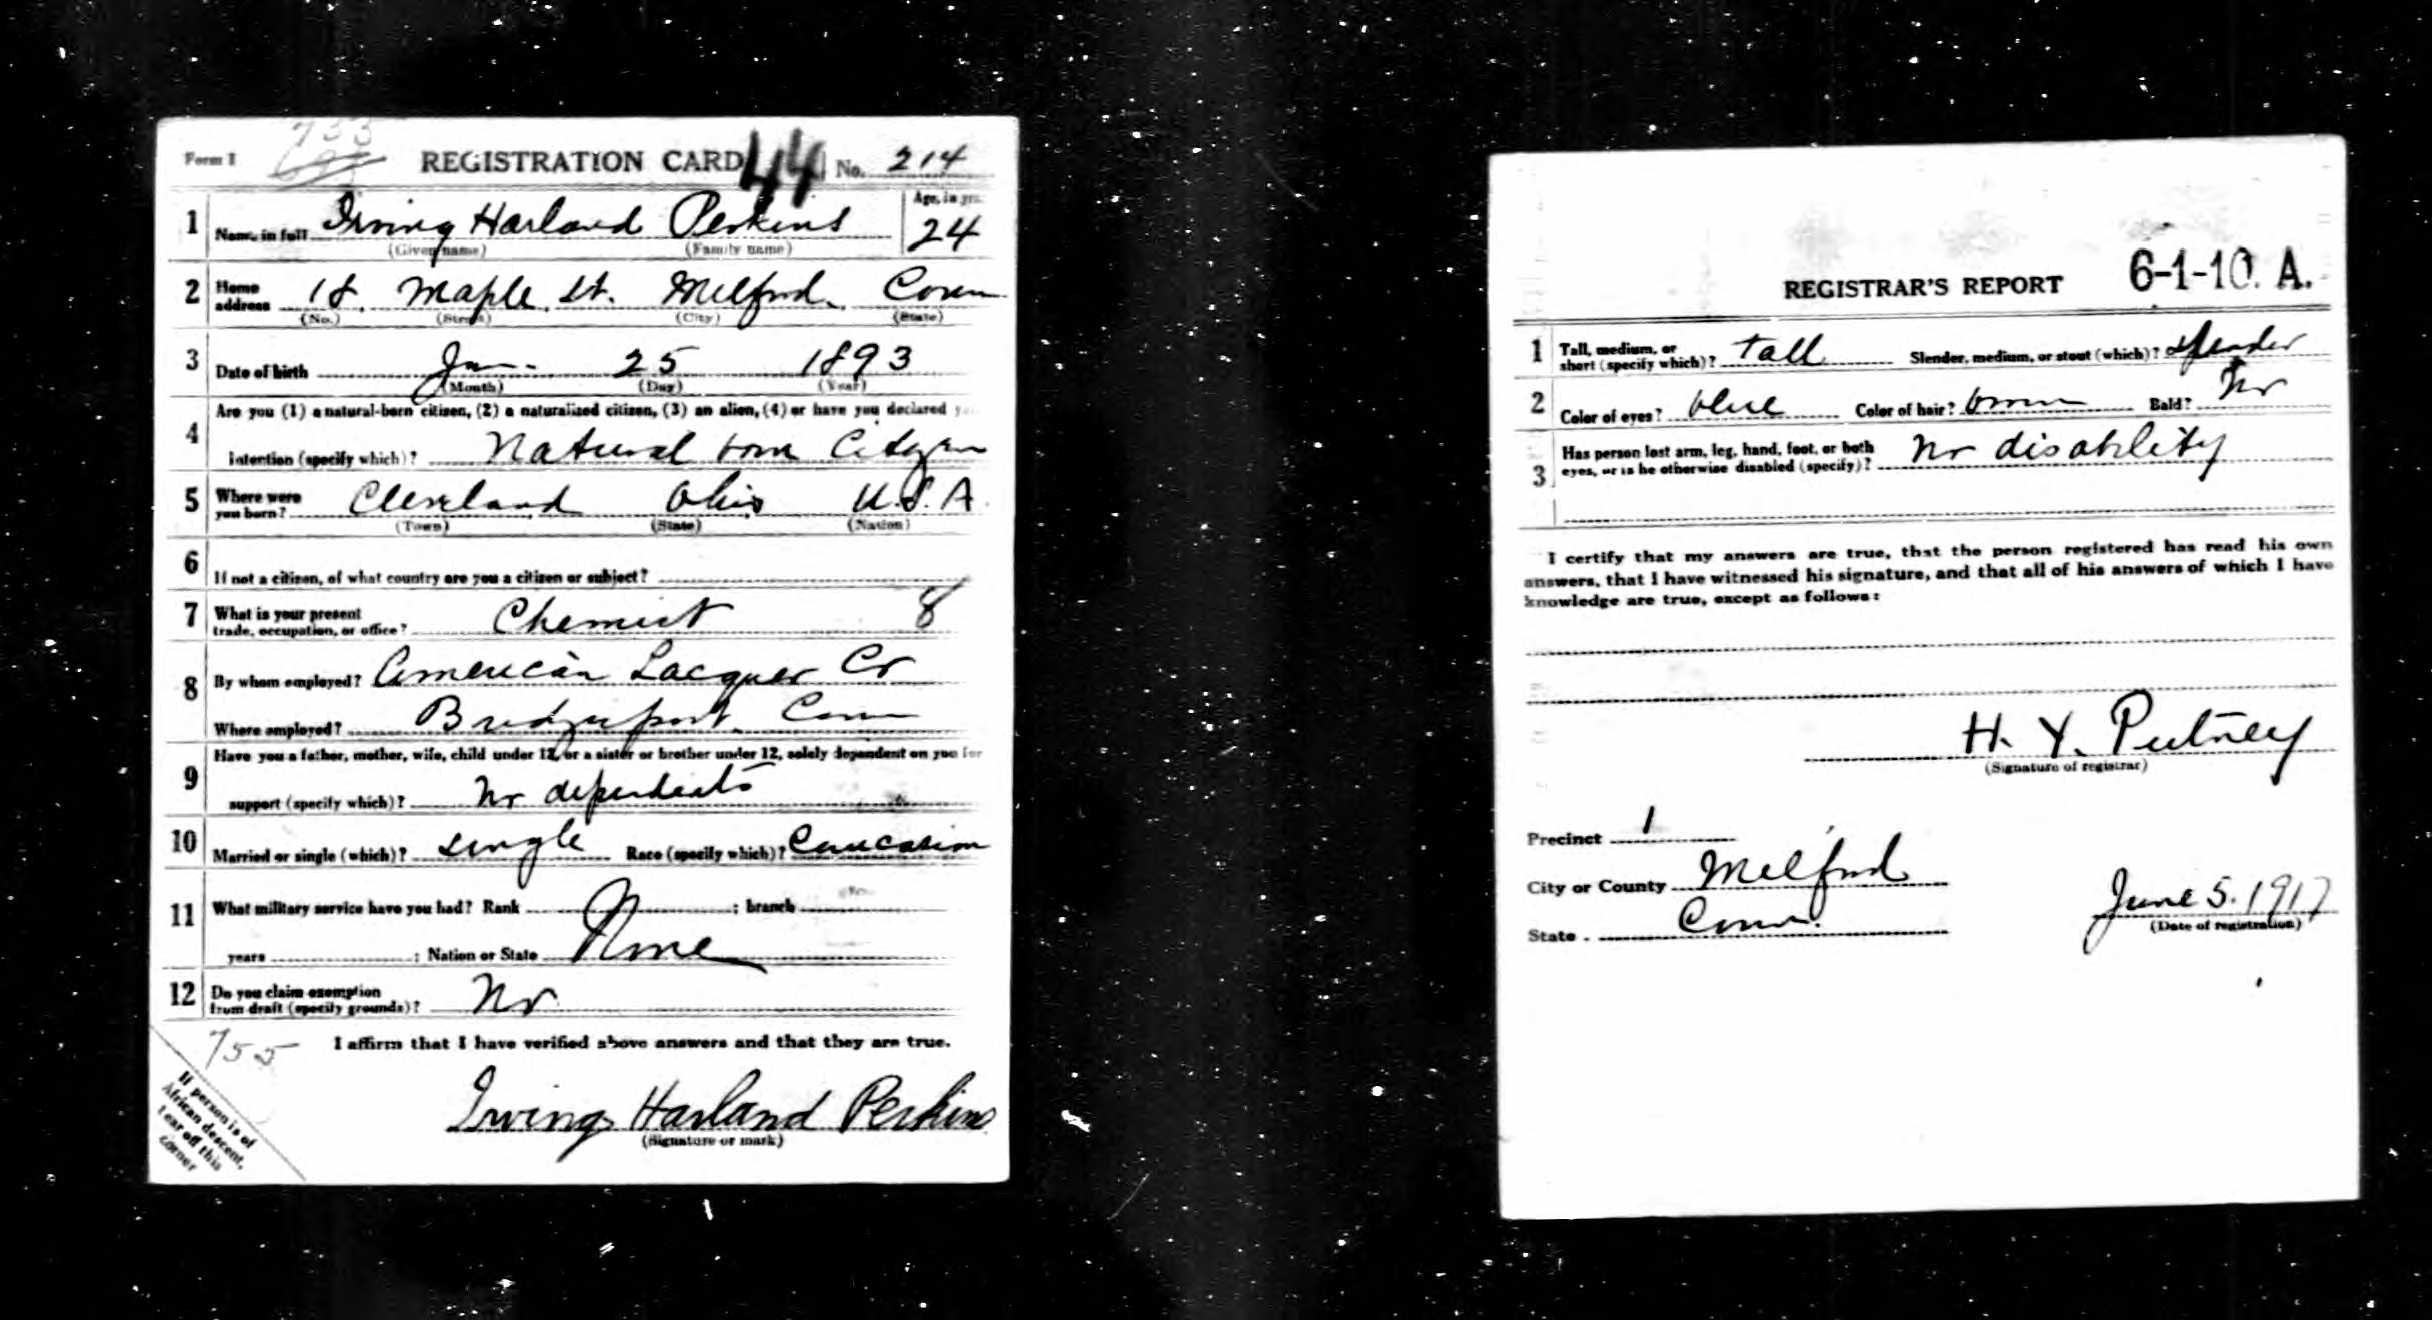 Form 1 733 REGISTRATION CARD 44 No. 214
1 Name in full Irving Harland Perkins Age, in yrs. 24
(Given name) (Family name)
2 Home address 18 Maple St. Milford Conn
(No.) (Street) (City) (State)
3 Date of birth Jan. 25 1893
(Month) (Day) (Year)
Are you (1) a natural-born citizen, (2) a naturalized citizen, (3) an alien, (4) or have you declared your
4 intention (specify which)? Natural born Citizen
5 Where were you born? Cleveland Ohio U.S.A.
(Town) (State) (Nation)
6 If not a citizen, of what country are you a citizen or subject?
7 What is your present trade, occupation, or office? Chemist 8
8 By whom employed? American Lacquer Co
Where employed? Bridgeport Conn
Have you a father, mother, wife, child under 12, or a sister or brother under 12, solely dependent on you for
9 support (specify which)? No dependents
10 Married or single (which)? single Race (specify which)? Caucasian
11 What military service have you had? Rank ; branch
years ; Nation or State None
12 Do you claim exemption from draft (specify grounds)? No
755 I affirm that I have verified above answers and that they are true.
Irving Harland Perkins
(Signature or mark)
If person is of
African descent,
tear off this
corner
REGISTRAR'S REPORT 6-1-10. A.
1 Tall, medium, or short (specify which)? Tall Slender, medium, or stout (which)? Slender
2 Color of eyes? blue Color of hair? brown Bald? No
3 Has person lost arm, leg, hand, foot, or both eyes, or is he otherwise disabled (specify)? No disability
I certify that my answers are true, that the person registered has read his own
answers, that I have witnessed his signature, and that all of his answers of which I have
knowledge are true, except as follows:
H. Y. Putney
(Signature of registrar)
Precinct 1
City or County Milford
State Conn. June 5. 1917
(Date of registration)